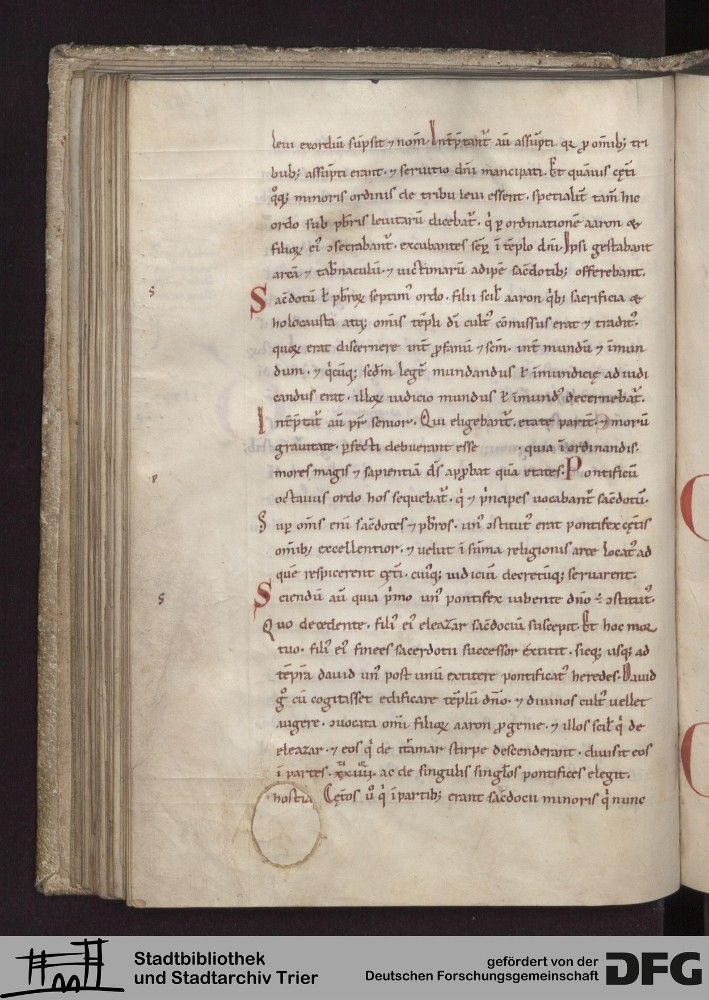 leui exordiũ sũpsit ⁊ nom̃. Int̃p̃tant᷑ aũ assũpti qꝛ ꝓ om̃ib; tri
bub; assũpti erant. ⁊ seruitio dñi mancipati. Et quãuis cęt̃i
q̊q; minoris ordinis de tribu leui essent. spetialit̃ tam̃ hic
ordo sub p̃bris leuitarũ dicebat᷑. q̇ ꝑ ordinationẽ aaron &
filioꝝ ei᷒ ↄsecrabant᷑. excubantes sẽp ĩ tẽplo dñi. Ipsi gestabant
arcã ⁊ tab̃naculũ. ⁊ uictimarũ adipẽ sac̃dotib; offerebant.
S
Sac̃dotũ ł p̃broꝝ septim᷒ ordo. filii scil̃ aaron q̇b; sacrificia &
holocausta atq; om̃is tẽpli dĩ cult᷒ cõmissus erat ⁊ tradit᷒.
quoꝝ erat discernere int̃ ꝓfanũ ⁊ sc̃m. int̃ mundũ ⁊ ĩmun
dum. ⁊ q̇cũq; sc̃dm legẽ mundandus ł ĩmundicię ad iudi
candus erat. illoꝝ iudicio mundus ł ĩmund᷒ decernebat᷑.
Int̃p̃tat᷑ aũ p̃br senior. Qui eligebant᷑. etatẽ parit̃. ⁊ morũ
grauitate. ꝑfecti debuerant esse . quia ĩ ordinandis.
mores magis ⁊ sapientiã dš apꝓbat quã etates. Pontificũ
octauus ordo hos sequebat᷑. q̇ ⁊ ṗncipes uocabant᷑ sac̃dotũ.
Sup om̃is eni᷑ sac̃dotes ⁊ p̃bros. un᷒ ↄstitut᷒ erat pontifex cęt̃is
om̃ib; excellentior. ⁊ uelut ĩ sũma religionis arce locat᷒ ad
quẽ respicerent cęt̃i. cui᷒q; iudiciũ decretũq; seruarent.
S
Sciendũ aũ quia ṗmo un᷒ pontifex iubente dño ÷ ↄstitut᷒.
Quo decedente. fili᷒ ei᷒ eleazar sac̃dociũ suscepit. Et hoc mor
tuo. fili᷒ ei᷒ finees sacerdotii successor extitit. sicq; usq; ad
tẽp̃ra dauid un᷒ post unũ extitere pontificat᷒ heredes. Dauid
g̊ cũ cogitasset edificare tẽplũ dño. ⁊ diuinos cult᷒ uellet
augere. ↄuocata om̃i filioꝝ aaron ꝓgenie. ⁊ illos scil̃ q̇ de
eleazar. ⁊ eos q̇ de ithamar stirpe descenderant. diuisit eos
ĩ partes. xxiiii. ac de singulis singlos pontifices elegit.
hostia Cęt̃os u̾ q̇ ĩ partib; erant sac̃docii minoris q̇ nunc
Stadtbibliothek
und Stadtarchiv Trier
gefördert von der
Deutschen Forschungsgemeinschaft
DFG